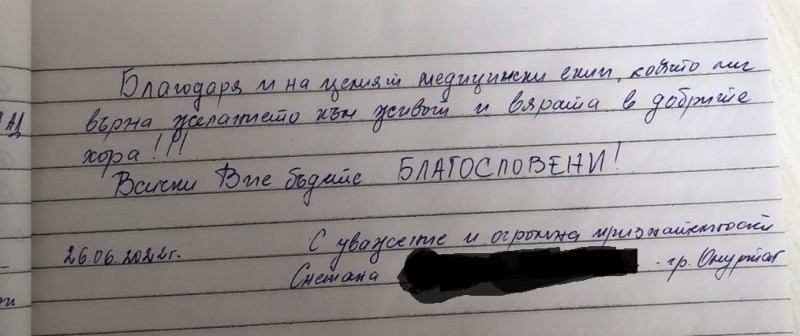 Благодаря и на целият медицински екип, който ми
върна желанието към живот и вярата в добрите
хора!!!
Всички Вие бъдете БЛАГОСЛОВЕНИ!
26.06.2022г.
С уважение и огромна признателност
Снежана - гр. Омуртаг